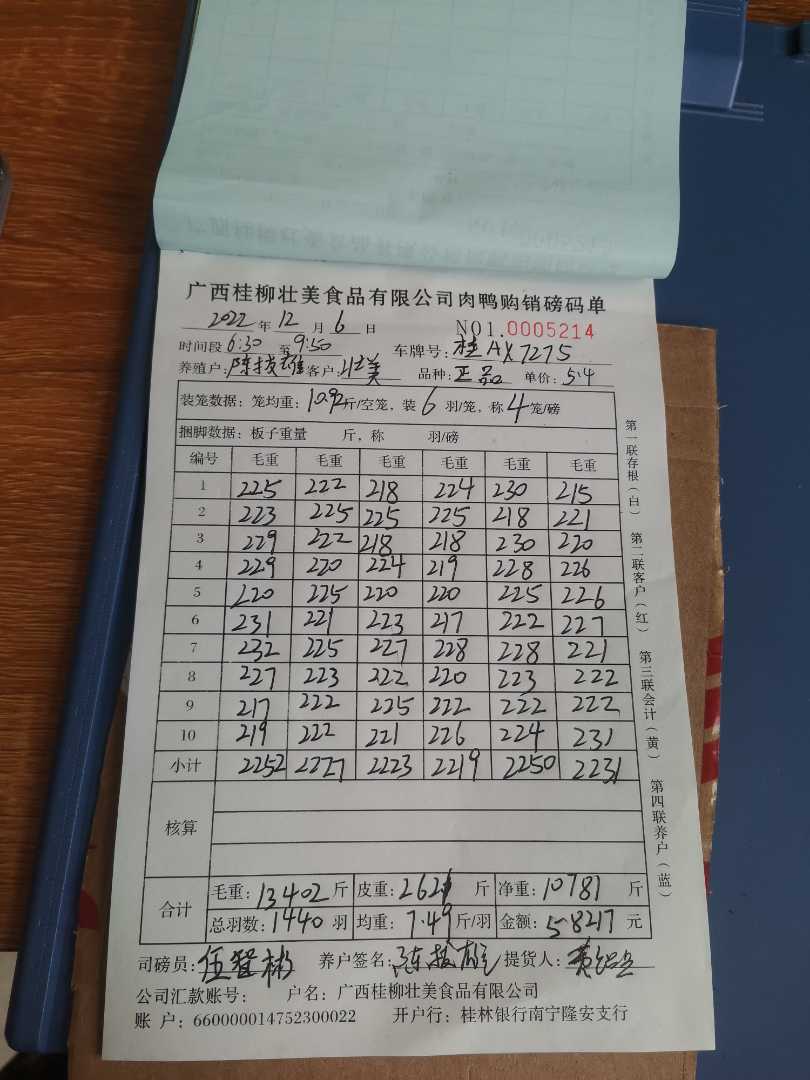 广西桂柳壮美食品有限公司肉鸭购销磅码单
2022年12月6日 NO1.0005214
时间段6:30至9:50 车牌号:桂AX7275
养殖户:陈技雄 客户:壮美 品种:正品 单价:5.4
装笼数据:笼均重:10.92斤/空笼,装6羽/笼,称4笼/磅
捆脚数据:板子重量 斤,称 羽/磅
编号 毛重 毛重 毛重 毛重 毛重 毛重
1 225 222 218 224 230 215
2 223 225 225 225 218 221
3 229 222 218 218 230 220
4 229 220 224 219 228 226
5 220 225 220 220 225 226
6 231 221 223 217 222 227
7 232 225 227 228 228 221
8 227 223 222 220 223 222
9 217 222 225 222 222 222
10 219 222 221 226 224 231
小计 2252 2227 2223 2219 2250 2231
核算
合计 毛重:13402斤 皮重:2621斤 净重:10781斤
总羽数:1440羽 均重:7.49斤/羽 金额:58217元
司磅员: 养户签名:陈技雄 提货人:
公司汇款账号: 户名:广西桂柳壮美食品有限公司
账户:660000014752300022 开户行:桂林银行南宁隆安支行
第一联存根(白) 第二联客户(红) 第三联会计(黄) 第四联养户(蓝)